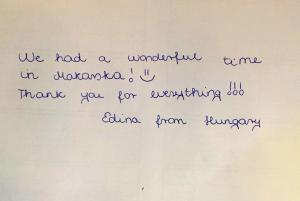 We had a wonderful time
in Makarska! :)
Thank you for everything!!!
Edina from Hungary